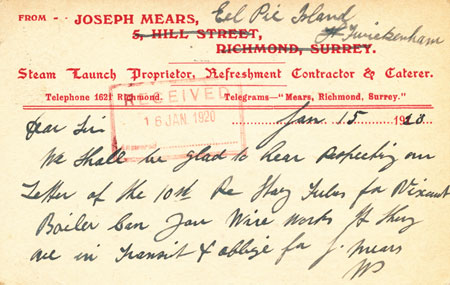 FROM - JOSEPH MEARS, Eel Pie Island
5, HILL STREET, Twickenham
RICHMOND, SURREY.
Steam Launch Proprietor, Refreshment Contractor & Caterer.
Telephone 1621 Richmond. Telegrams—"Mears, Richmond, Surrey."
RECEIVED
16 JAN. 1920
ANSWERED
Jan 15 19
Dear Sir
We Shall be glad to hear respecting our
Letter of the 10th Re Stay Tubes for
Boiler Can You Wire works If they
are in Transit & oblige for J. Mears